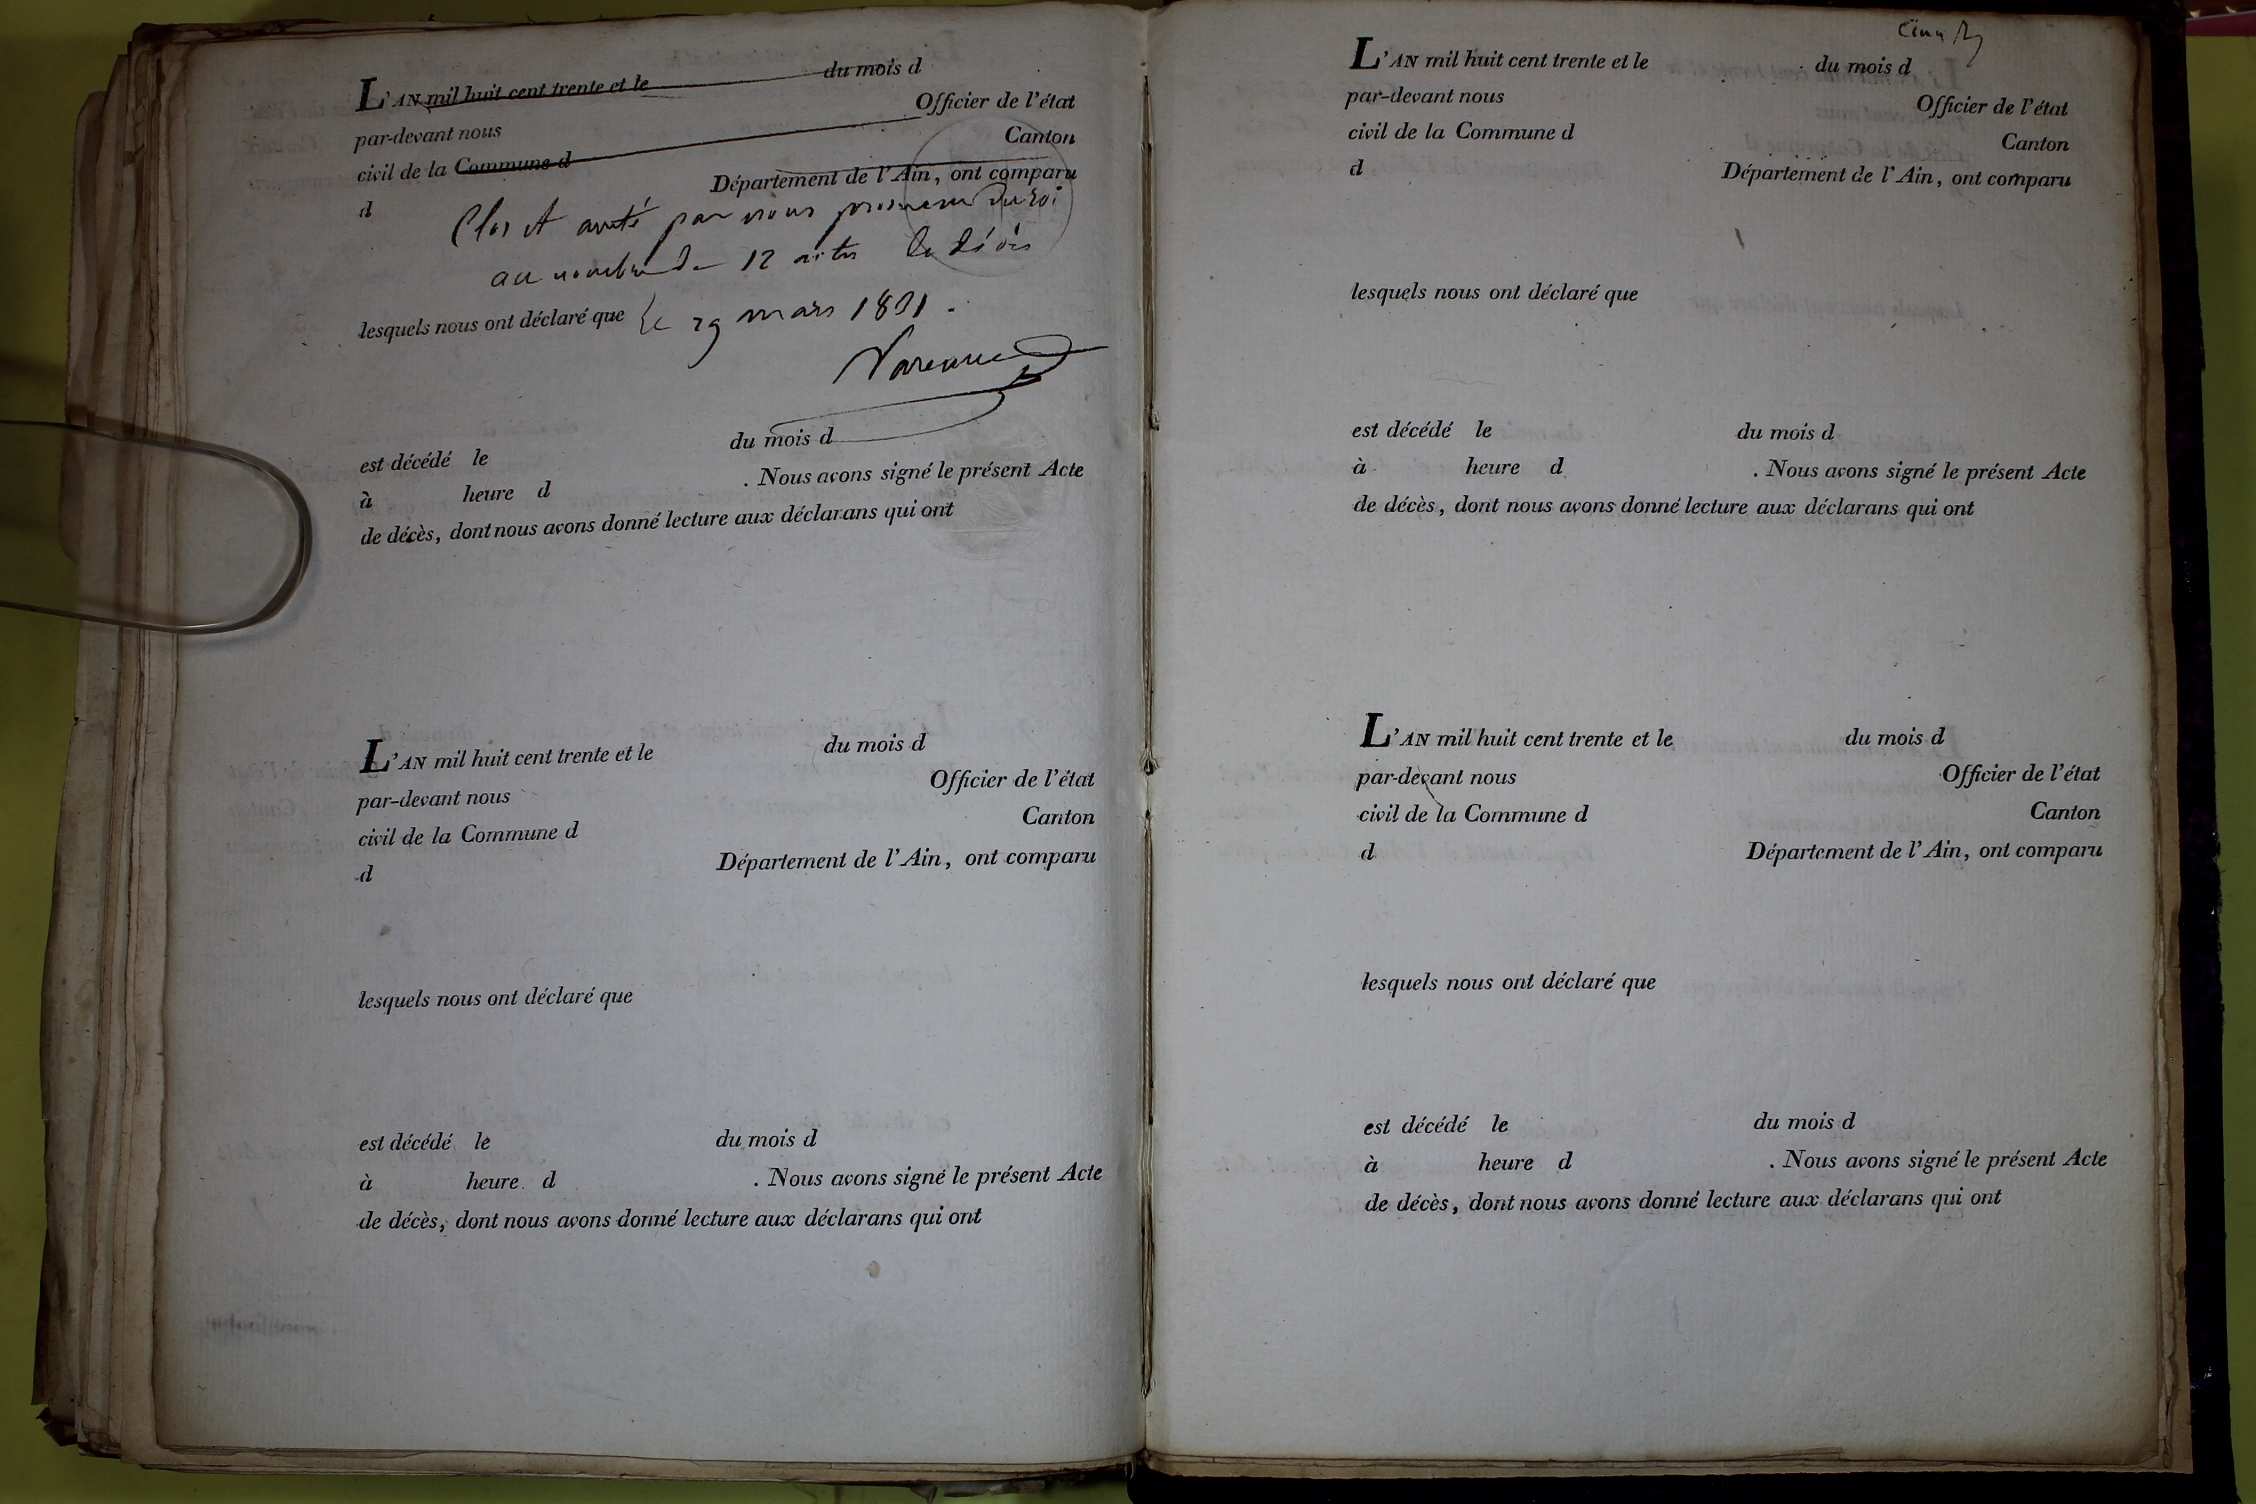 L'AN mil huit cent trente et le du mois d
par-devant nous Officier de l'état
civil de la Commune d Canton
d Département de l'Ain, ont comparu
Clos et arreté par nous procureur du roi
au nombre de 12 actes de décès
lesquels nous ont déclaré que le 29 mars 1831.
est décédé le du mois d
à heure d . Nous avons signé le présent Acte
de décès, dont nous avons donné lecture aux déclarans qui ont
L'AN mil huit cent trente et le du mois d
par-devant nous Officier de l'état
civil de la Commune d Canton
d Département de l'Ain, ont comparu
lesquels nous ont déclaré que
est décédé le du mois d
à heure d . Nous avons signé le présent Acte
de décès, dont nous avons donné lecture aux déclarans qui ont
L'AN mil huit cent trente et le du mois d
par-devant nous Officier de l'état
civil de la Commune d Canton
d Département de l'Ain, ont comparu
lesquels nous ont déclaré que
est décédé le du mois d
à heure d . Nous avons signé le présent Acte
de décès, dont nous avons donné lecture aux déclarans qui ont
L'AN mil huit cent trente et le du mois d
par-devant nous Officier de l'état
civil de la Commune d Canton
d Département de l'Ain, ont comparu
lesquels nous ont déclaré que
est décédé le du mois d
à heure d . Nous avons signé le présent Acte
de décès, dont nous avons donné lecture aux déclarans qui ont